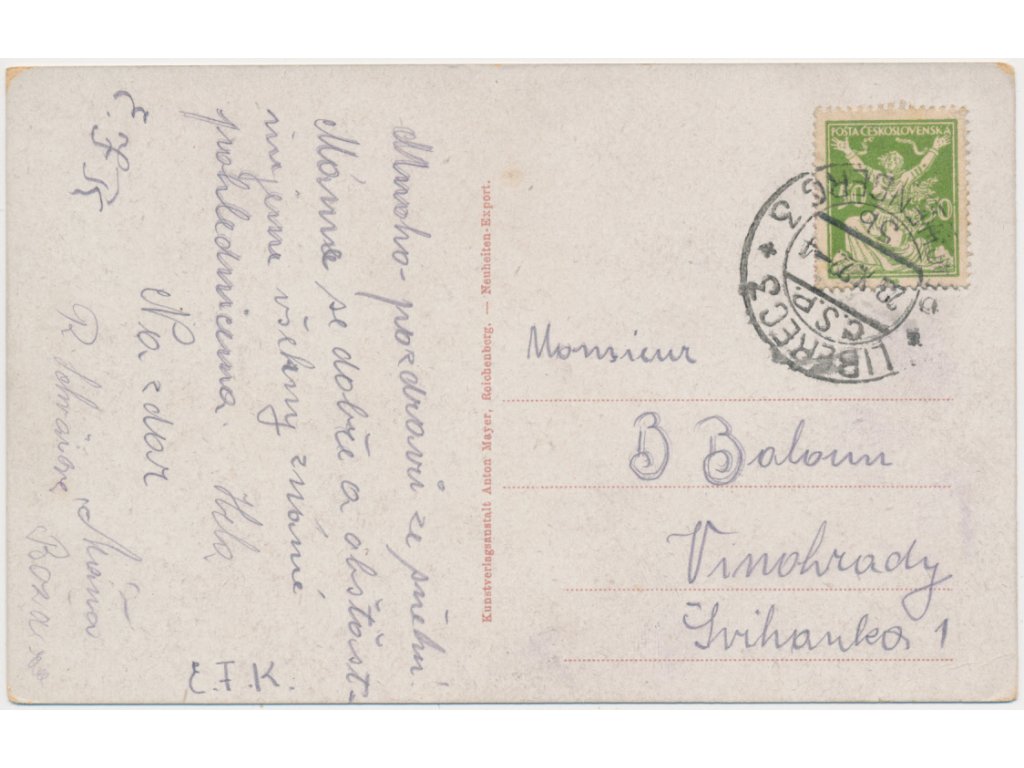 Mnoho pozdravů ze sněhu!
Máme se dobře a obšťast-
ňujeme všekny známé
pohlednicema. Hela
Na zdar
Máňa
Boza
E.F.K.
Kunstverlagsanstalt Anton Mayer, Reichenberg. — Neuheiten-Export.
POŠTA ČESKOSLOVENSKÁ
50
LIBEREC 3
Č.S.P.
3b
Monsieur
B Baloun
Vinohrady
Svihanka 1